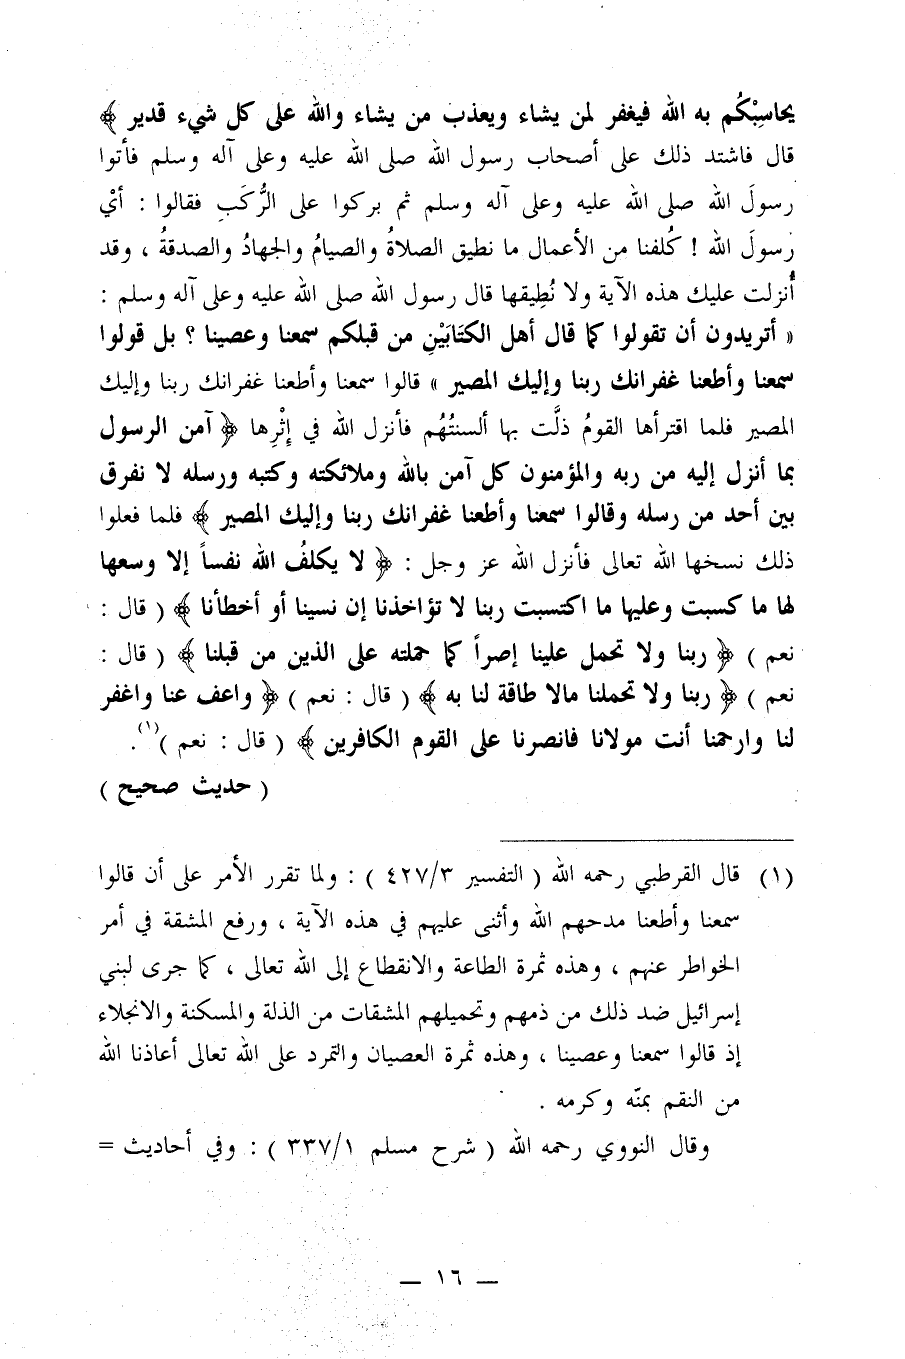 يحاسِبْكُم به الله فيغفر لمن يشاء ويعذب من يشاء والله على كل شيء قدير ﴾
قال فاشتد ذلك على أصحاب رسول الله صلى الله عليه وعلى آله وسلم فأتوا
رسولَ الله صلى الله عليه وعلى آله وسلم ثم بركوا على الرُّكَبِ فقالوا : أيْ
رسولَ الله ! كُلفنا من الأعمال ما نطيق الصلاةُ والصيامُ والجهادُ والصدقةُ ، وقد
أُنزلت عليك هذه الآية ولا نُطِيقها قال رسول الله صلى الله عليه وعلى آله وسلم :
« أتريدون أن تقولوا كما قال أهل الكتابَيْنِ من قبلكم سمعنا وعصينا ؟ بل قولوا
سمعنا وأطعنا غفرانك ربنا وإليك المصير » قالوا سمعنا وأطعنا غفرانك ربنا وإليك
المصير فلما اقترأها القومُ ذلَّت بها ألسنتُهُم فأنزل الله في إِثْرِها ﴿ آمن الرسول
بما أنزل إليه من ربه والمؤمنون كل آمن بالله وملائكته وكتبه ورسله لا نفرق
بين أحد من رسله وقالوا سمعنا وأطعنا غفرانك ربنا وإليك المصير ﴾ فلما فعلوا
ذلك نسخها الله تعالى فأنزل الله عز وجل : ﴿ لا يكلفُ الله نفساً إلا وسعها
لها ما كسبت وعليها ما اكتسبت ربنا لا تؤاخذنا إن نسينا أو أخطأنا ﴾ ( قال :
نعم ) ﴿ ربنا ولا تحمل علينا إصراً كما حملته على الذين من قبلنا ﴾ ( قال :
نعم ) ﴿ ربنا ولا تحملنا مالا طاقة لنا به ﴾ ( قال : نعم ) ﴿ واعف عنا واغفر
لنا وارحمنا أنت مولانا فانصرنا على القوم الكافرين ﴾ ( قال : نعم )(١).
( حديث صحيح )
(١) قال القرطبي رحمه الله ( التفسير ٤٢٧/٣ ) : ولما تقرر الأمر على أن قالوا
سمعنا وأطعنا مدحهم الله وأثنى عليهم في هذه الآية ، ورفع المشقة في أمر
الخواطر عنهم ، وهذه ثمرة الطاعة والانقطاع إلى الله تعالى ، كما جرى لبني
إسرائيل ضد ذلك من ذمهم وتحميلهم المشقات من الذلة والمسكنة والانجلاء
إذ قالوا سمعنا وعصينا ، وهذه ثمرة العصيان والتمرد على الله تعالى أعاذنا الله
من النقم بمنّه وكرمه .
وقال النووي رحمه الله ( شرح مسلم ٣٣٧/١ ) : وفي أحاديث =
— ١٦ —